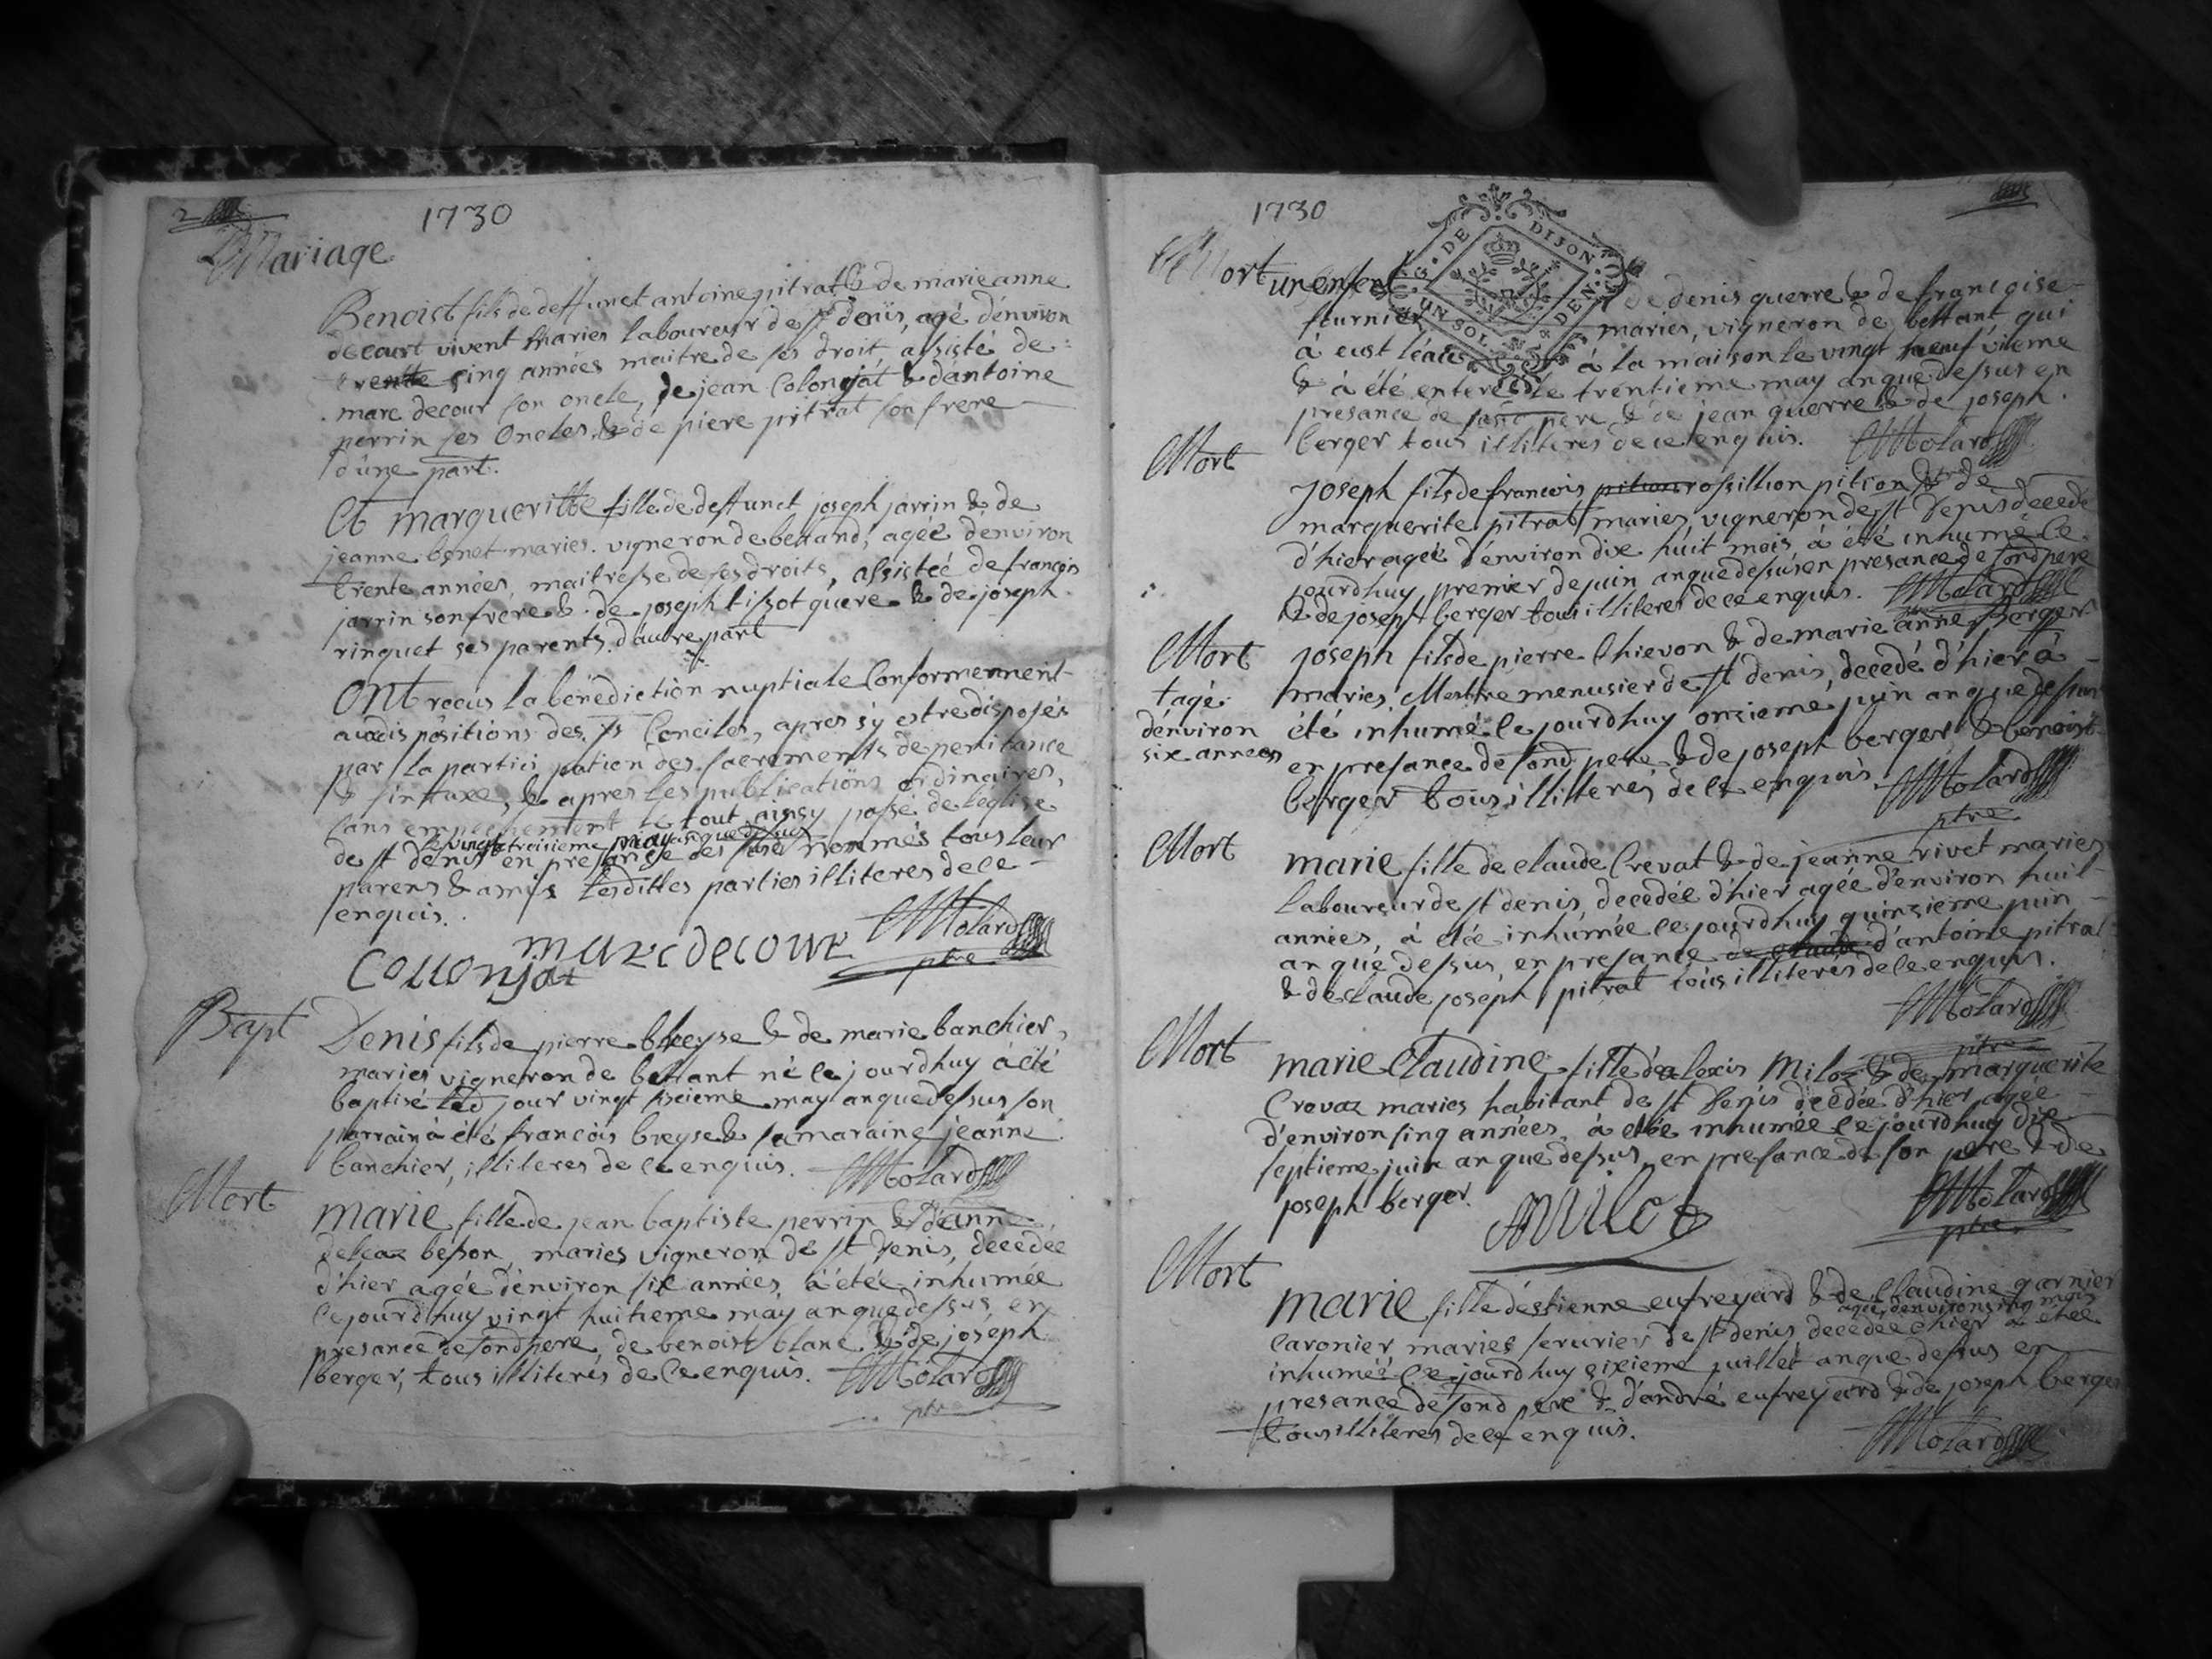 2
1730
Mariage
Benoist fils de deffunct antoine pitrat & de marie anne
decourt vivent maries laboureur de st denis, agé d'environ
trente cinq années maitre de ses droit, assisté de
marc decour son oncle, de jean Colonjat & d'antoine
perrin ses Oncles, & de piere pitrat son frere
d'une part.
Et margueritte fille de deffunct joseph jarrin & de
jeanne benet maries. vigneron de bettand, agée d'environ
trente années, maitresse de ses droits, assistée de francois
jarrin son frere & de joseph tissot guere & de joseph
rinquet ses parents. d'autre part
Ont recus la bénédiction nuptiale Conformement
aux dispositions des. Sts Conciles, apres s'y estre disposés
par la participation des sacrements de penitance
& sintaxe, & apres les publications ordinaires,
sans empechement le tout ainsy passé de l'eglise
le vingt troisieme may an que dessus
de st denis en presance des susd nommés tous leur
parens & amis lesdittes parties illiteres de ce
enquis.
marc decour Molard
Collonjat ptre
Bapt Denis fils de pierre breyse & de marie banchier,
maries vigneron de bettant né ce jourdhuy à été
baptisé led jour vingt sixieme may an que dessus son
parrain à été francois breyse & sa maraine jeanne
banchier, illiteres de ce enquis. Molard
Mort marie fille de jean baptiste perrin & d'anne
besson, maries vigneron de st denis, decedée
d'hier agée d'environ six années, à étée inhumée
ce jourdhuy vingt huitieme may an que dessus, en
presance de sond pere, de benoist blanc & de joseph
berger, tous illiterés de ce enquis. Molard
ptre
1730
DE DIJON
UN SOL
DEN
Mort un enfent de denis guerre & de francoise
furnier maries, vigneron de bettant qui
à la maison le vingt neuf vieme
& à été enteré le trentieme may an que dessus en
presance de pere & de jean guerre & de joseph
berger tous illiteres de ce enquis. Molard
Mort joseph fils de francois pition rossillion pition & de
marguerite pitrat maries, vigneron de st Denis decedé
d'hier agée d'environ dix huit mois à été inhumé ce
jourdhuy premier de juin an que dessus en presance de sond pere
& de joseph berger tous illiteres de ce enquis. Molard
Mort joseph fils de pierre Chievon & de marie anne Berger
tagé maries, Mestre menusier de st denis, decedé d'hier à
d'environ été inhumé ce jourdhuy onzieme juin an que dessus
six années en presance de sond pere & de joseph berger & benoist
berger tous illitterés de ce enquis. Molard
ptre
Mort marie fille de claude Crevat & de jeanne rivet maries
laboureur de st denis, decedée d'hier agée d'environ huit
années, à étée inhumée ce jourdhuy quinzieme juin
an que dessus, en presance d'antoine pitrat
& de claude joseph pitrat tous illiteres de ce enquis.
Molard
ptre
Mort marie Claudine fille d'alexis Miloz & de marguerite
Crevaz maries habitant de st Denis decedée d'hier agée
d'environ sinq années, à étée inhumée ce jourdhuy dix
septieme juin an que dessus, en presance de son pere & de
joseph berger. Milod Molard
ptre
Mort marie fille d'estienne eufreyard & de Claudine garnier
agée d'environ sinq mois
caronier maries serurier de st denis decedée d'hier à étée
inhumée ce jourdhuy sixieme juillet an que dessus en
presance de sond pere & d'andré eufreyard & de joseph berger
tous illiteres de ce enquis.
Molard